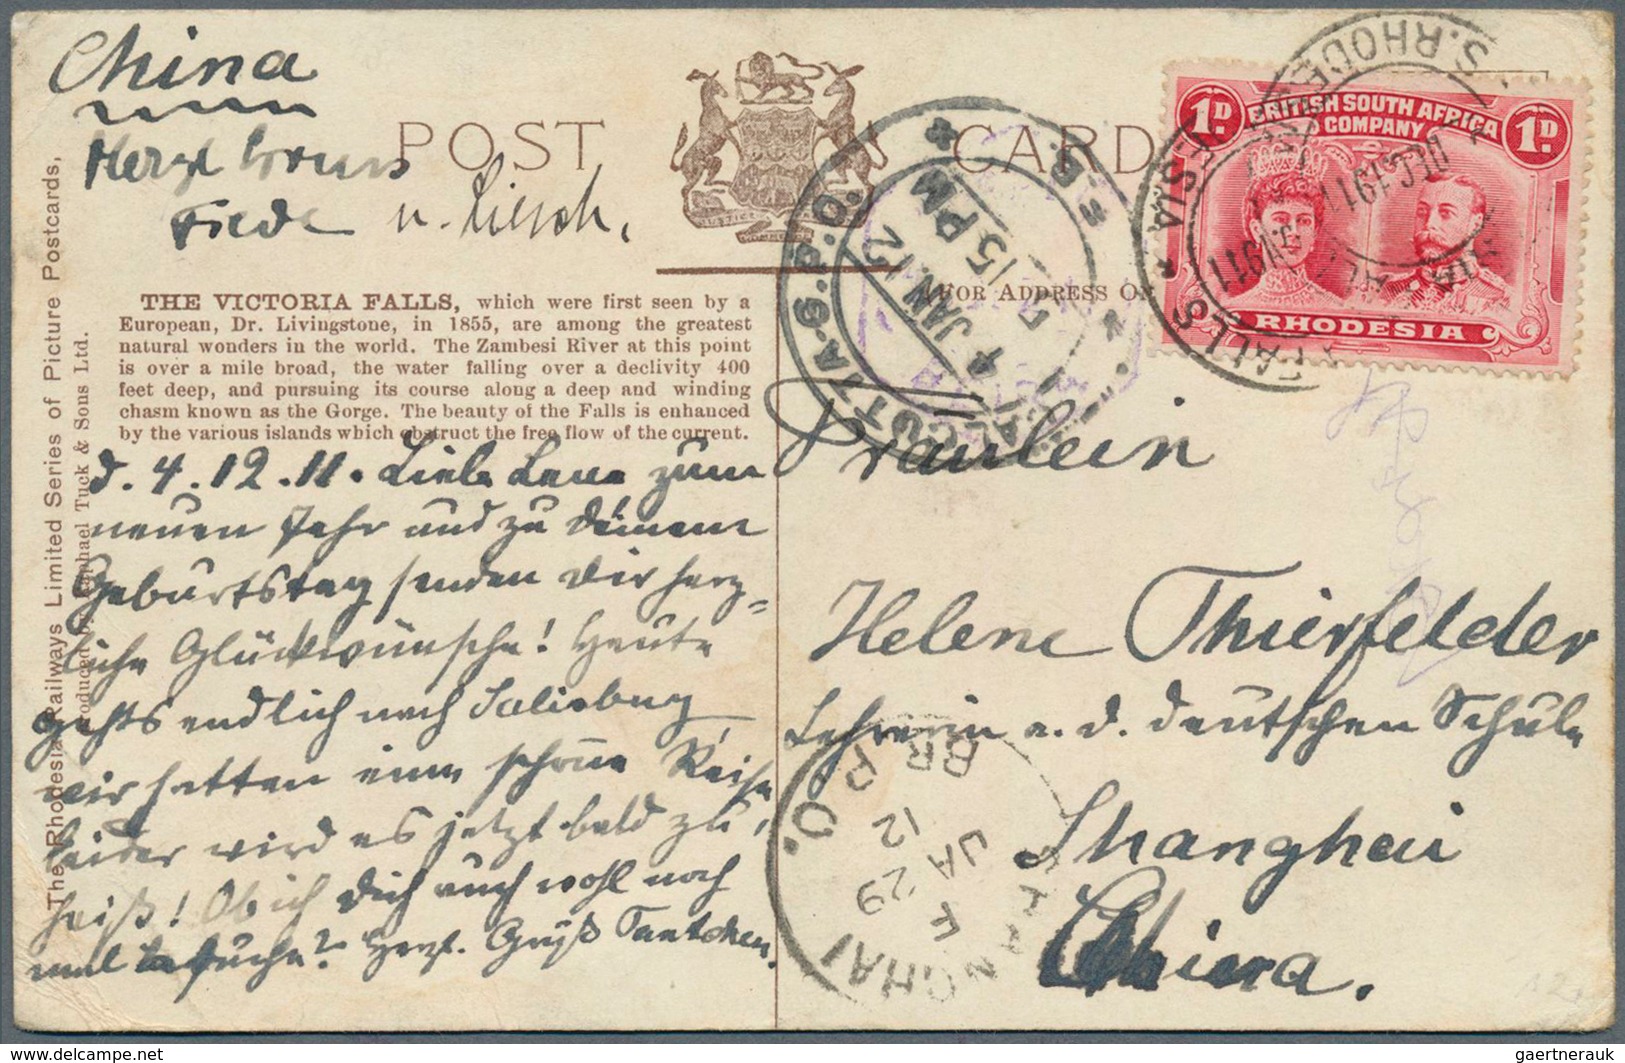 China
Herzl. Gruss
u. Liesch.
POST CARD
JUSTICE COMMERCE
FOR ADDRESS ON
THE VICTORIA FALLS, which were first seen by a
European, Dr. Livingstone, in 1855, are among the greatest
natural wonders in the world. The Zambesi River at this point
is over a mile broad, the water falling over a declivity 400
feet deep, and pursuing its course along a deep and winding
chasm known as the Gorge. The beauty of the Falls is enhanced
by the various islands which obstruct the free flow of the current.
The Rhodesia Railways Limited Series of Picture Postcards,
Produced by Raphael Tuck & Sons Ltd.
d. 4.12.11. Liebe Lene zum
neuen Jahr und zu deinem
Geburtstag senden wir herz=
liche Glückwünsche! Heute
gehts endlich nach Salisbury
wir hatten eine schöne Reise
leider wird es jetzt bald zu
heiß! Ob ich dich auch wohl noch
mal besuche? Herzl. Gruß Tantchen.
Fräulein
Helene Thierfelder
Lehrerin a. d. deutschen Schule
Shanghai
China.
1D. BRITISH SOUTH AFRICA 1D.
COMPANY
RHODESIA
FALLS
S. RHODESIA
DEC 1911
CALCUTTA G.P.O.
4 JAN. 12
7 15 PM
SHANGHAI BR. P.O.
F
JA 29
12
gaertnerauk
delcampe.net